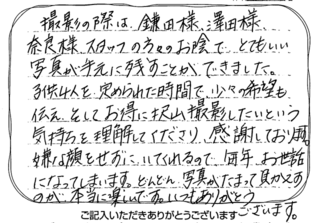 撮影の際は、鎌田様、澤田様、
奈良様、スタッフの方々のお陰で、とてもいい
写真が手元に残すことができました。
子供4人を定められた時間で、少々の希望も
伝え、そしてお得に沢山撮影したいという
気持ちを理解してくださり、感謝しております。
嫌な顔をせずについてくれるって、毎年、お世話
になってしまいます。どんどん、写真がたまって見かえす
のが本当に楽しいです。いつもありがとう
ございます。
ご記入いただきありがとうございます